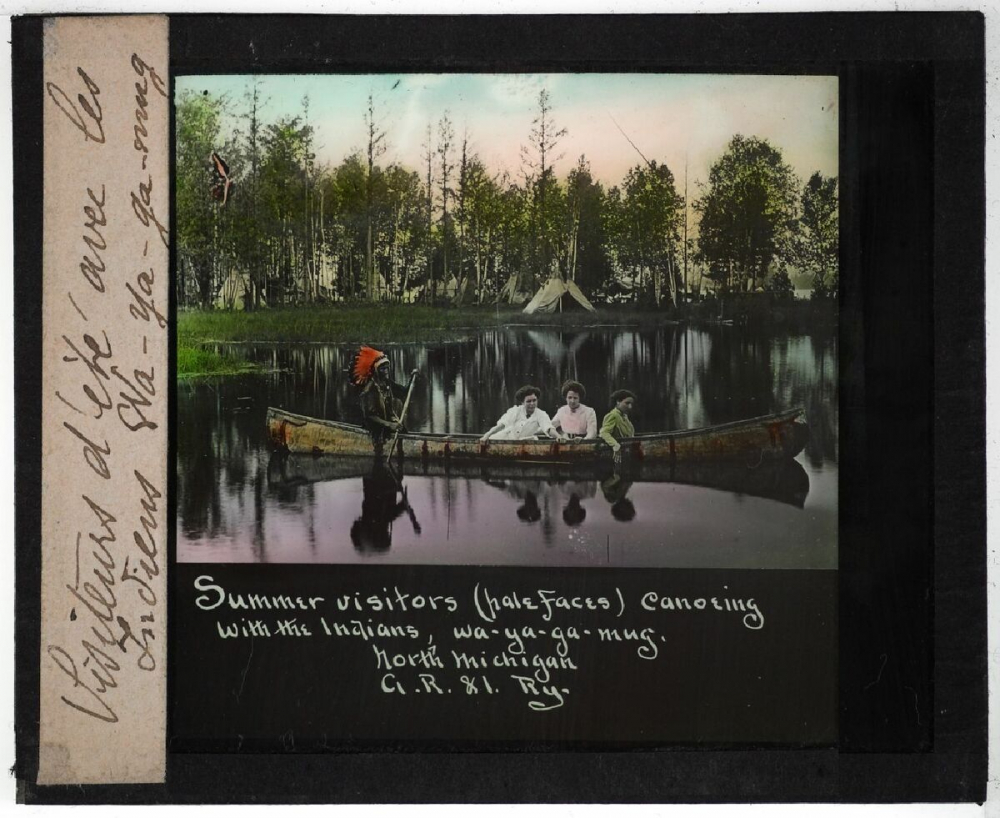 Visiteurs d'été avec les
Indiens Wa-ya-ga-mug
Summer visitors (paleFaces) Canoeing
with the Indians, wa-ya-ga-mug.
North Michigan
G.R. & I. Ry.